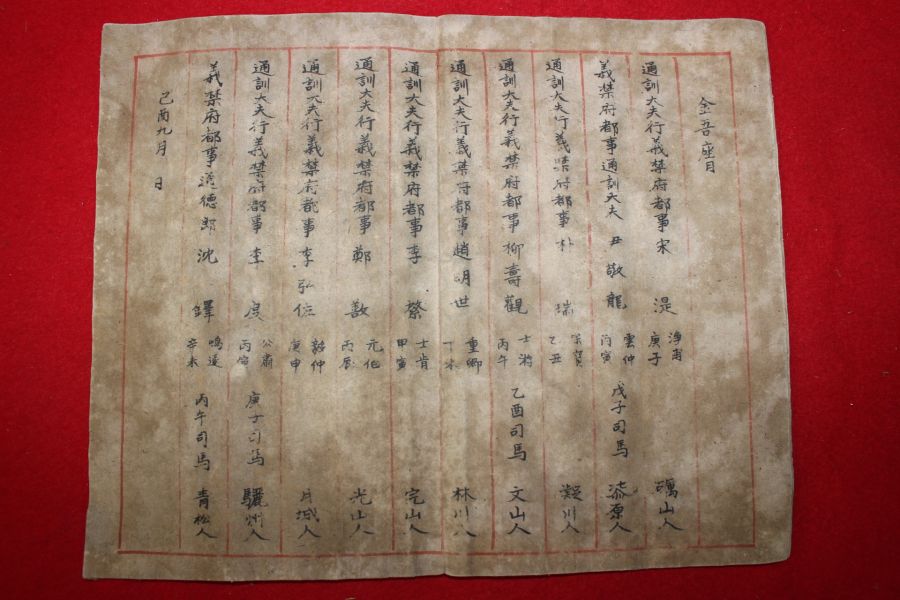 金吾座目
通訓大夫行義禁府都事宋 湜 淨甫 庚子 礪山人
義禁府都事通訓大夫 尹敬龍 雲仲 丙寅 戊子司馬 漆原人
通訓大夫行義禁府都事朴 瑞 乙丑 凝川人
通訓大夫行義禁府都事柳壽觀 丙午 乙酉司馬 文山人
通訓大夫行義禁府都事趙明世 重卿 丁未 林川人
通訓大夫行義禁府都事李 㮚 士肯 甲寅 完山人
通訓大夫行義禁府都事鄭 敾 元伯 丙辰 光山人
通訓大夫行義禁府都事李弘佐 毅仲 庚申 月城人
通訓大夫行義禁府都事李 度 公肅 丙寅 庚子司馬 驪州人
義禁府都事通德郎沈 鐸 鳴遠 辛未 丙午司馬 青松人
己酉九月 日